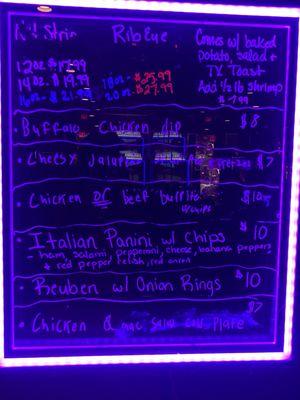 N.Y Strip Ribeye
Comes w/ baked
potato, salad +
TX Toast
Add 1/2 lb shrimp
$7.99
12oz $17.99
14oz. $19.99 18oz. $25.99
16oz. $21.99 20oz. $27.99
• Buffalo Chicken dip $8
• Cheesy Jalapeño pretzels $7
• Chicken or beef burrito
w/chips
• Italian Panini w/ Chips $10
- ham, salami, pepperoni, cheese, banana peppers
+ red pepper relish, red onion
• Reuben w/ Onion Rings $10
• Chicken & mac Plate $7